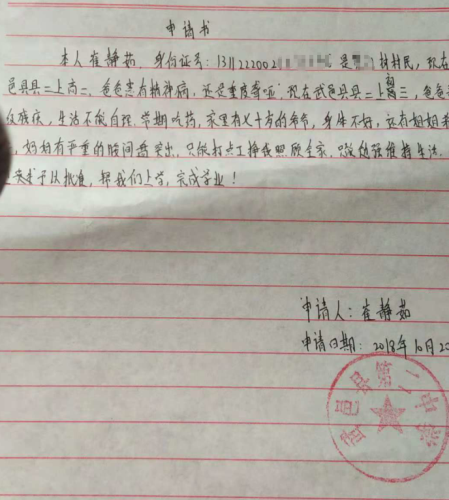 申请书
本人崔静茹，身份证号：1311222002 是 村村民，现在
邑县县二上高二，爸爸患有精神病，还是重度聋哑，现在武邑县县二上高三，爸爸
在瘫痪，生活不能自理，常期吃药，家里有七十岁的爷爷，身体不好，还有姐姐
妈妈有严重的腰间盘突出，只能打点工挣钱照顾全家，只能勉强维持生活。
来予以批准，帮我们上学，完成学业！
申请人：崔静茹
申请日期：2018年10月20
武邑县第二中学